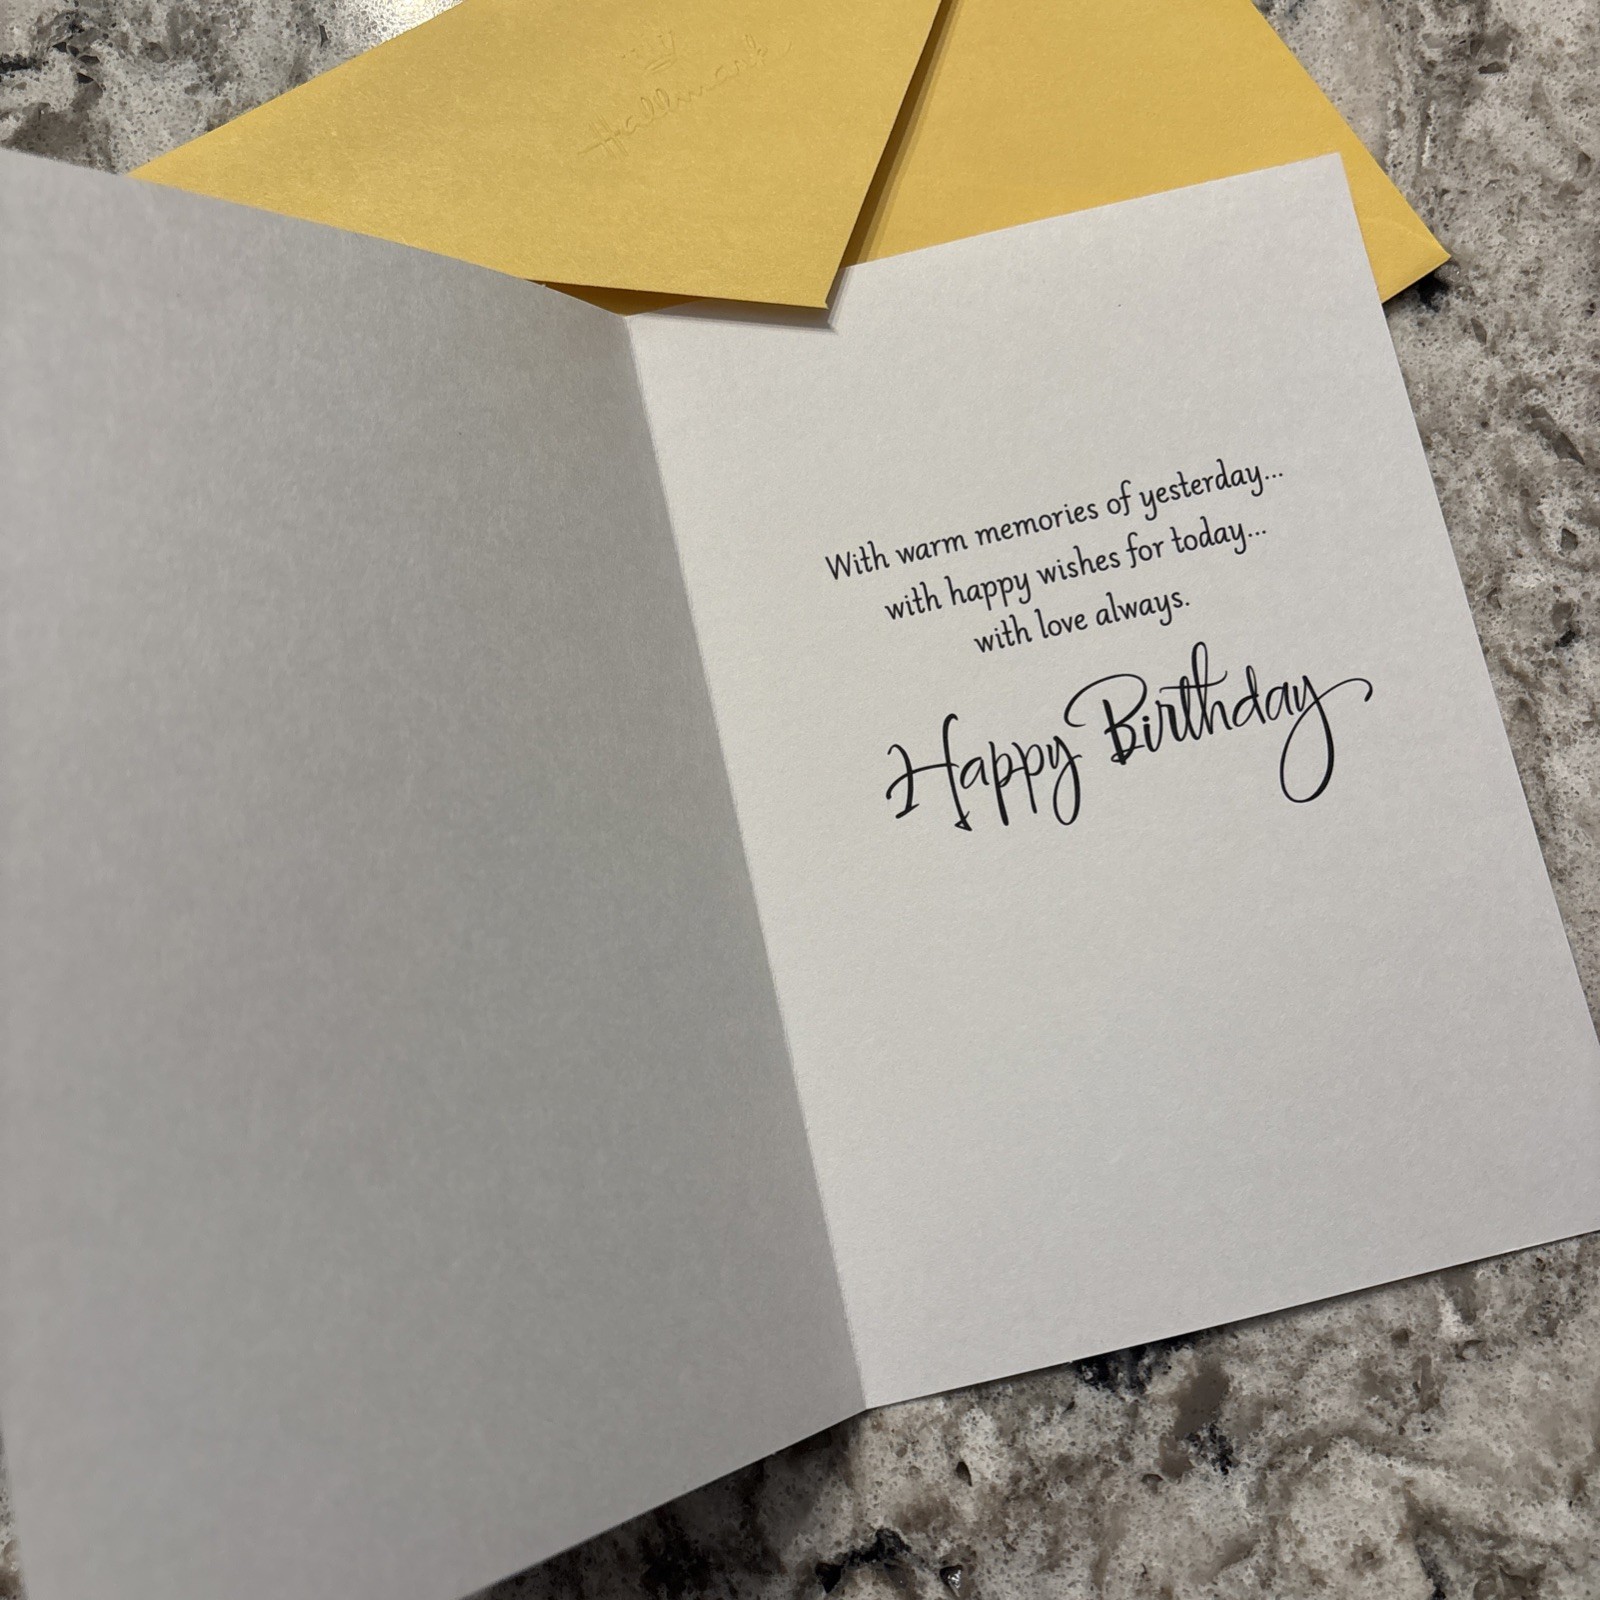 Hallmark
With warm memories of yesterday...
with happy wishes for today...
with love always.
Happy Birthday